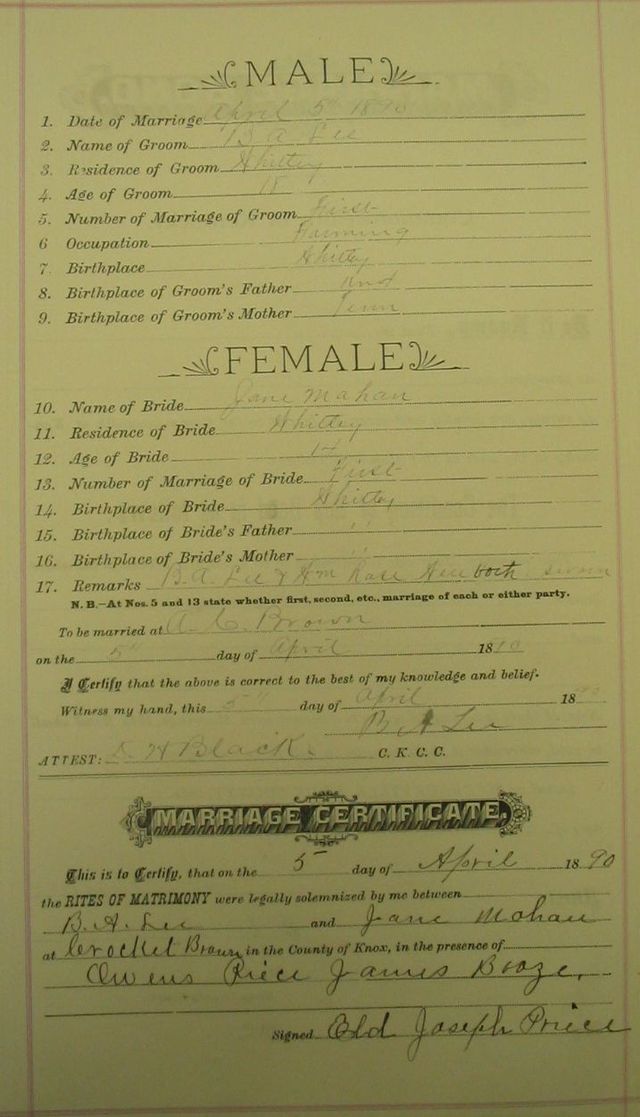 MALE
1. Date of Marriage April 5th 1890
2. Name of Groom B A Lee
3. Residence of Groom Whitley
4. Age of Groom 18
5. Number of Marriage of Groom First
6 Occupation Farming
7. Birthplace Whitley
8. Birthplace of Groom's Father Knox
9. Birthplace of Groom's Mother Tenn
FEMALE
10. Name of Bride Jane Mahan
11. Residence of Bride Whitley
12. Age of Bride
13. Number of Marriage of Bride First
14. Birthplace of Bride Whitley
15. Birthplace of Bride's Father "
16. Birthplace of Bride's Mother "
17. Remarks B. A. Lee & Wm Rose both sworn
N. B.—At Nos. 5 and 13 state whether first, second, etc., marriage of each or either party.
To be married at A. C. Brown
on the 5th day of April 1890
I Certify that the above is correct to the best of my knowledge and belief.
Witness my hand, this 5th day of April 1890
B A Lee
ATTEST: D. H Black. C. K. C. C.
MARRIAGE CERTIFICATE.
This is to Certify, that on the 5 day of April 1890
the RITES OF MATRIMONY were legally solemnized by me between
B. A. Lee and Jane Mahan
at Crocket Brown in the County of Knox, in the presence of
Owens Price James Booze.
Signed Eld Joseph Price